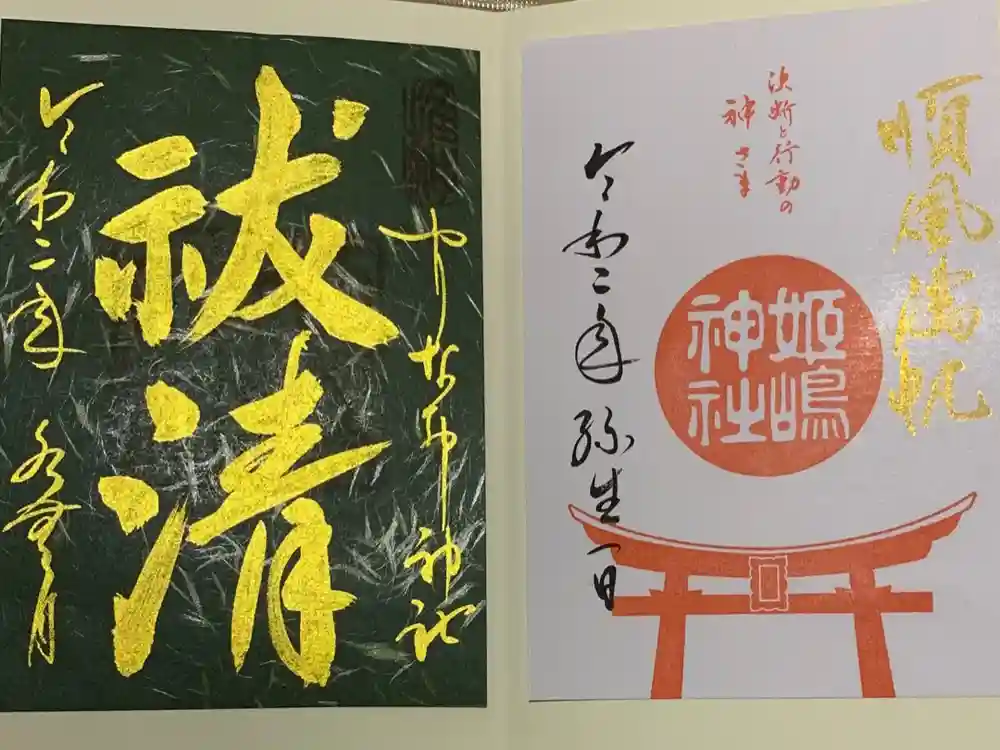 順風満帆
決断と行動の
神さま
姫嶋
神社
令和二年 弥生一日
神社
祓清
令和二年 水無月